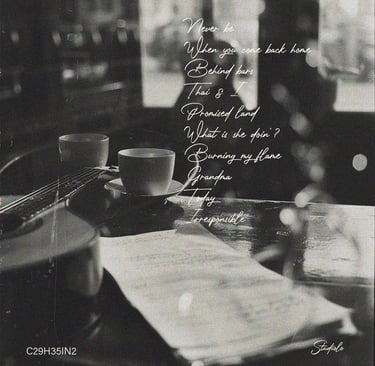 Never be
When you come back home
Behind bars
Thai & I
Promised land
What is she doin'?
Burning my flame
Grandma
Today
Irresponsible
C29H35IN2